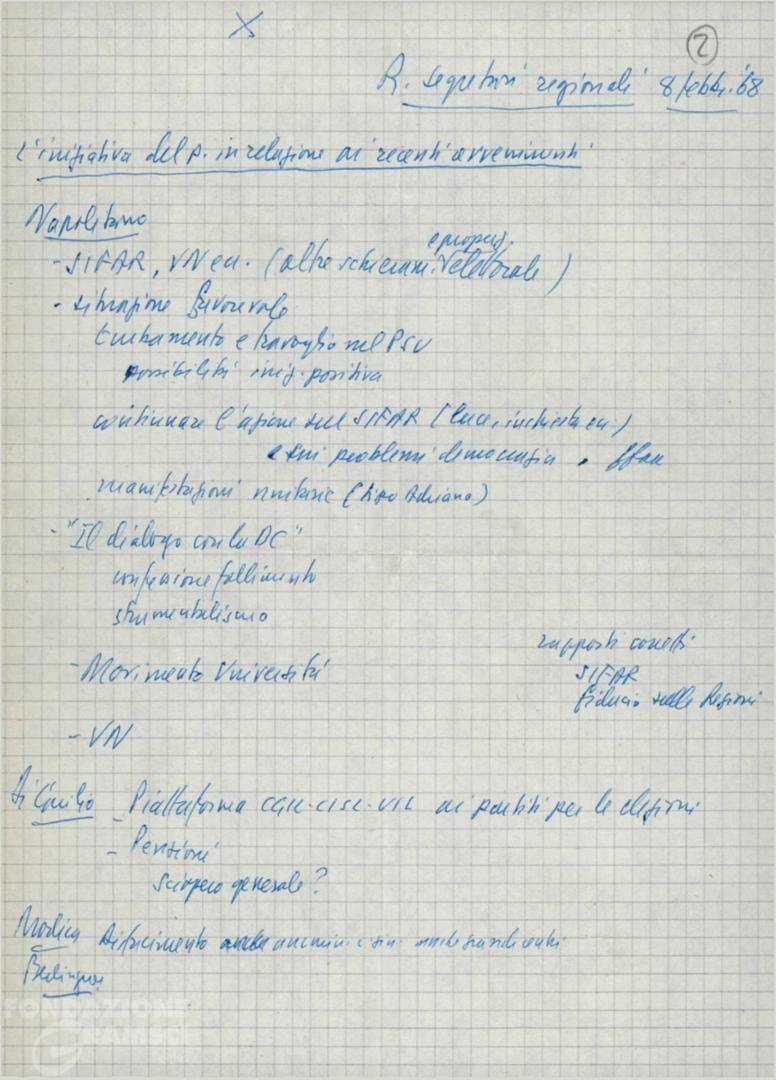 X
2
R. segretari regionali 8 febbr. '68
L'iniziativa del p. in relazione ai recenti avvenimenti
Napolitano
- SIFAR, VN ecc. (altre schieram. e propos. elettorale)
- situazione favorevole
turbamento e travaglio nel PSU
possibilità iniz. positiva
continuare l'azione sul SIFAR (luce, inchiesta ecc.)
e sui problemi democrazia
manifestazioni unitarie (tipo Adriano)
- "Il dialogo con la DC"
confessione fallimento
strumentalismo
- Movimento Università
rapporti corretti
SIFAR
fiducia sulle Regioni
- VN
Di Giulio - Piattaforma CGIL-CISL-UIL ai partiti per le elezioni
- Pensioni
sciopero generale?
Modica disfacimento anche ammin. c.sin. grandi centri
Berlinguer
FONDAZIONE
GRAMSCI